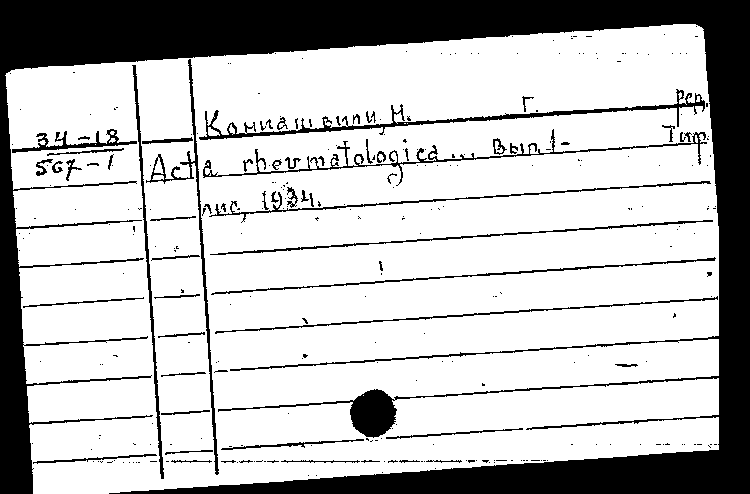 34-18
567-1
Кониашвили, Н. Г. рец.
Acta rheumatologica... Вып. 1- Тир.
лис, 1934.